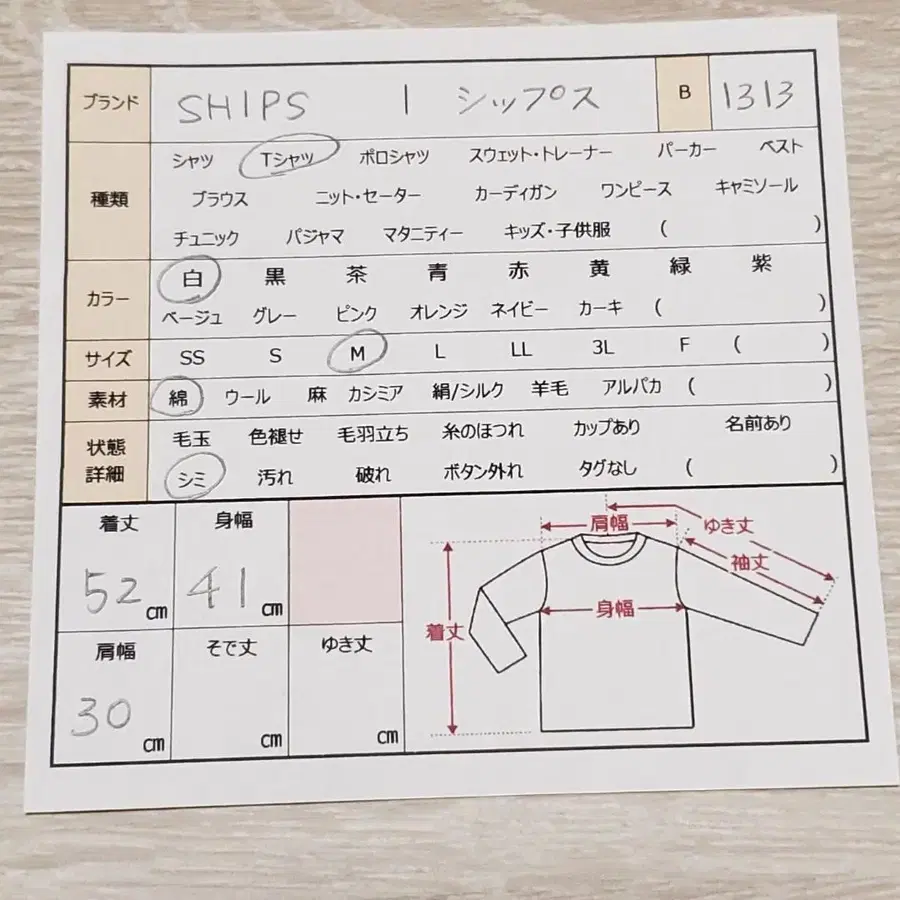 ブランド SHIPS | シップス B 1313
シャツ Tシャツ ポロシャツ スウェット・トレーナー パーカー ベスト
種類 ブラウス ニット・セーター カーディガン ワンピース キャミソール
チュニック パジャマ マタニティー キッズ・子供服 ( )
カラー 白 黒 茶 青 赤 黄 緑 紫
ベージュ グレー ピンク オレンジ ネイビー カーキ ( )
サイズ SS S M L LL 3L F ( )
素材 綿 ウール 麻 カシミア 絹/シルク 羊毛 アルパカ ( )
状態 毛玉 色褪せ 毛羽立ち 糸のほつれ カップあり 名前あり
詳細 シミ 汚れ 破れ ボタン外れ タグなし ( )
着丈 身幅
52 cm 41 cm
肩幅 そで丈 ゆき丈
30 cm cm cm
肩幅 ゆき丈
袖丈
身幅
着丈